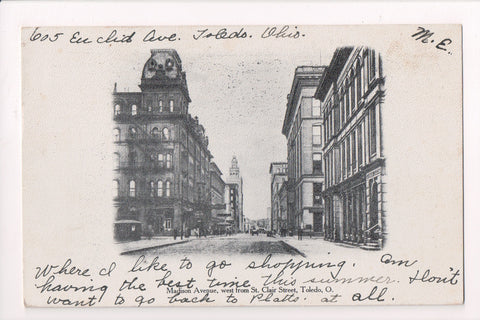 605 Euclid Ave. Toledo. Ohio.
M.E.
Where I like to go shopping. Am
having the best time this summer. Don't
Madison Avenue, west from St. Clair Street, Toledo, O.
want to go back to Platts. at all.